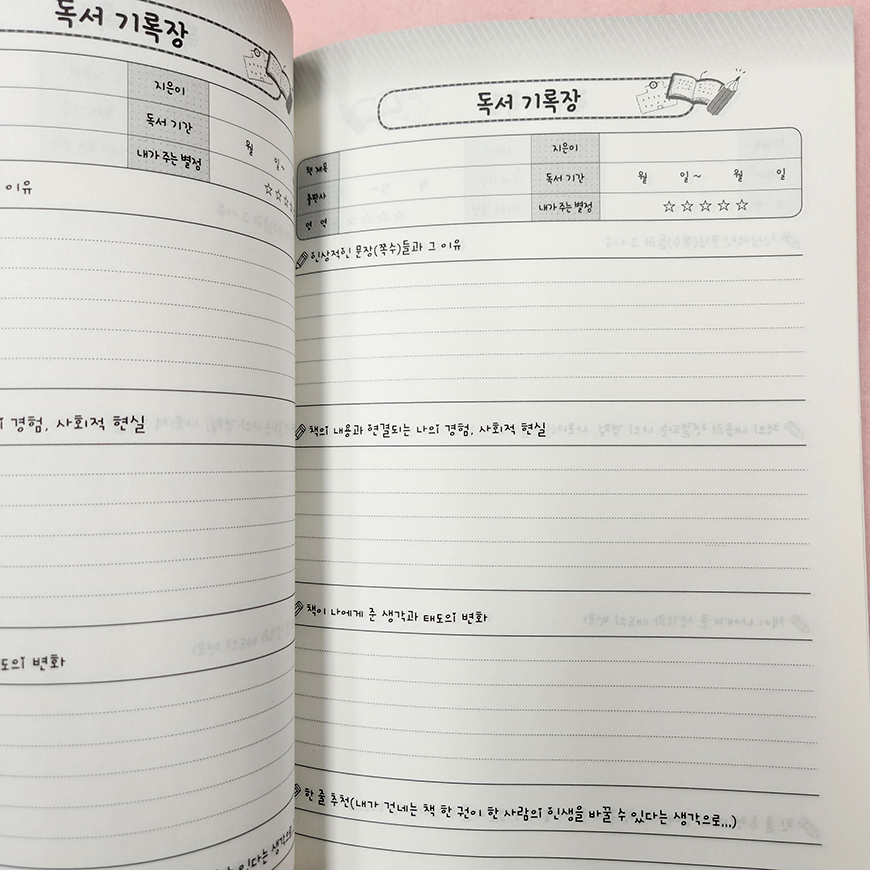 독서 기록장
지은이
독서 기간
월 일~
내가 주는 별점
☆☆☆☆
이유
경험, 사회적 현실
도의 변화
있다는 생각으로
독서 기록장
책 제목
지은이
출판사
독서 기간 월 일 ~ 월 일
영역
내가 주는 별점 ☆☆☆☆☆
인상적인 문장(쪽수)들과 그 이유
책의 내용과 연결되는 나의 경험, 사회적 현실
책이 나에게 준 생각과 태도의 변화
한 줄 추천(내가 건네는 책 한 권이 한 사람의 인생을 바꿀 수 있다는 생각으로...)